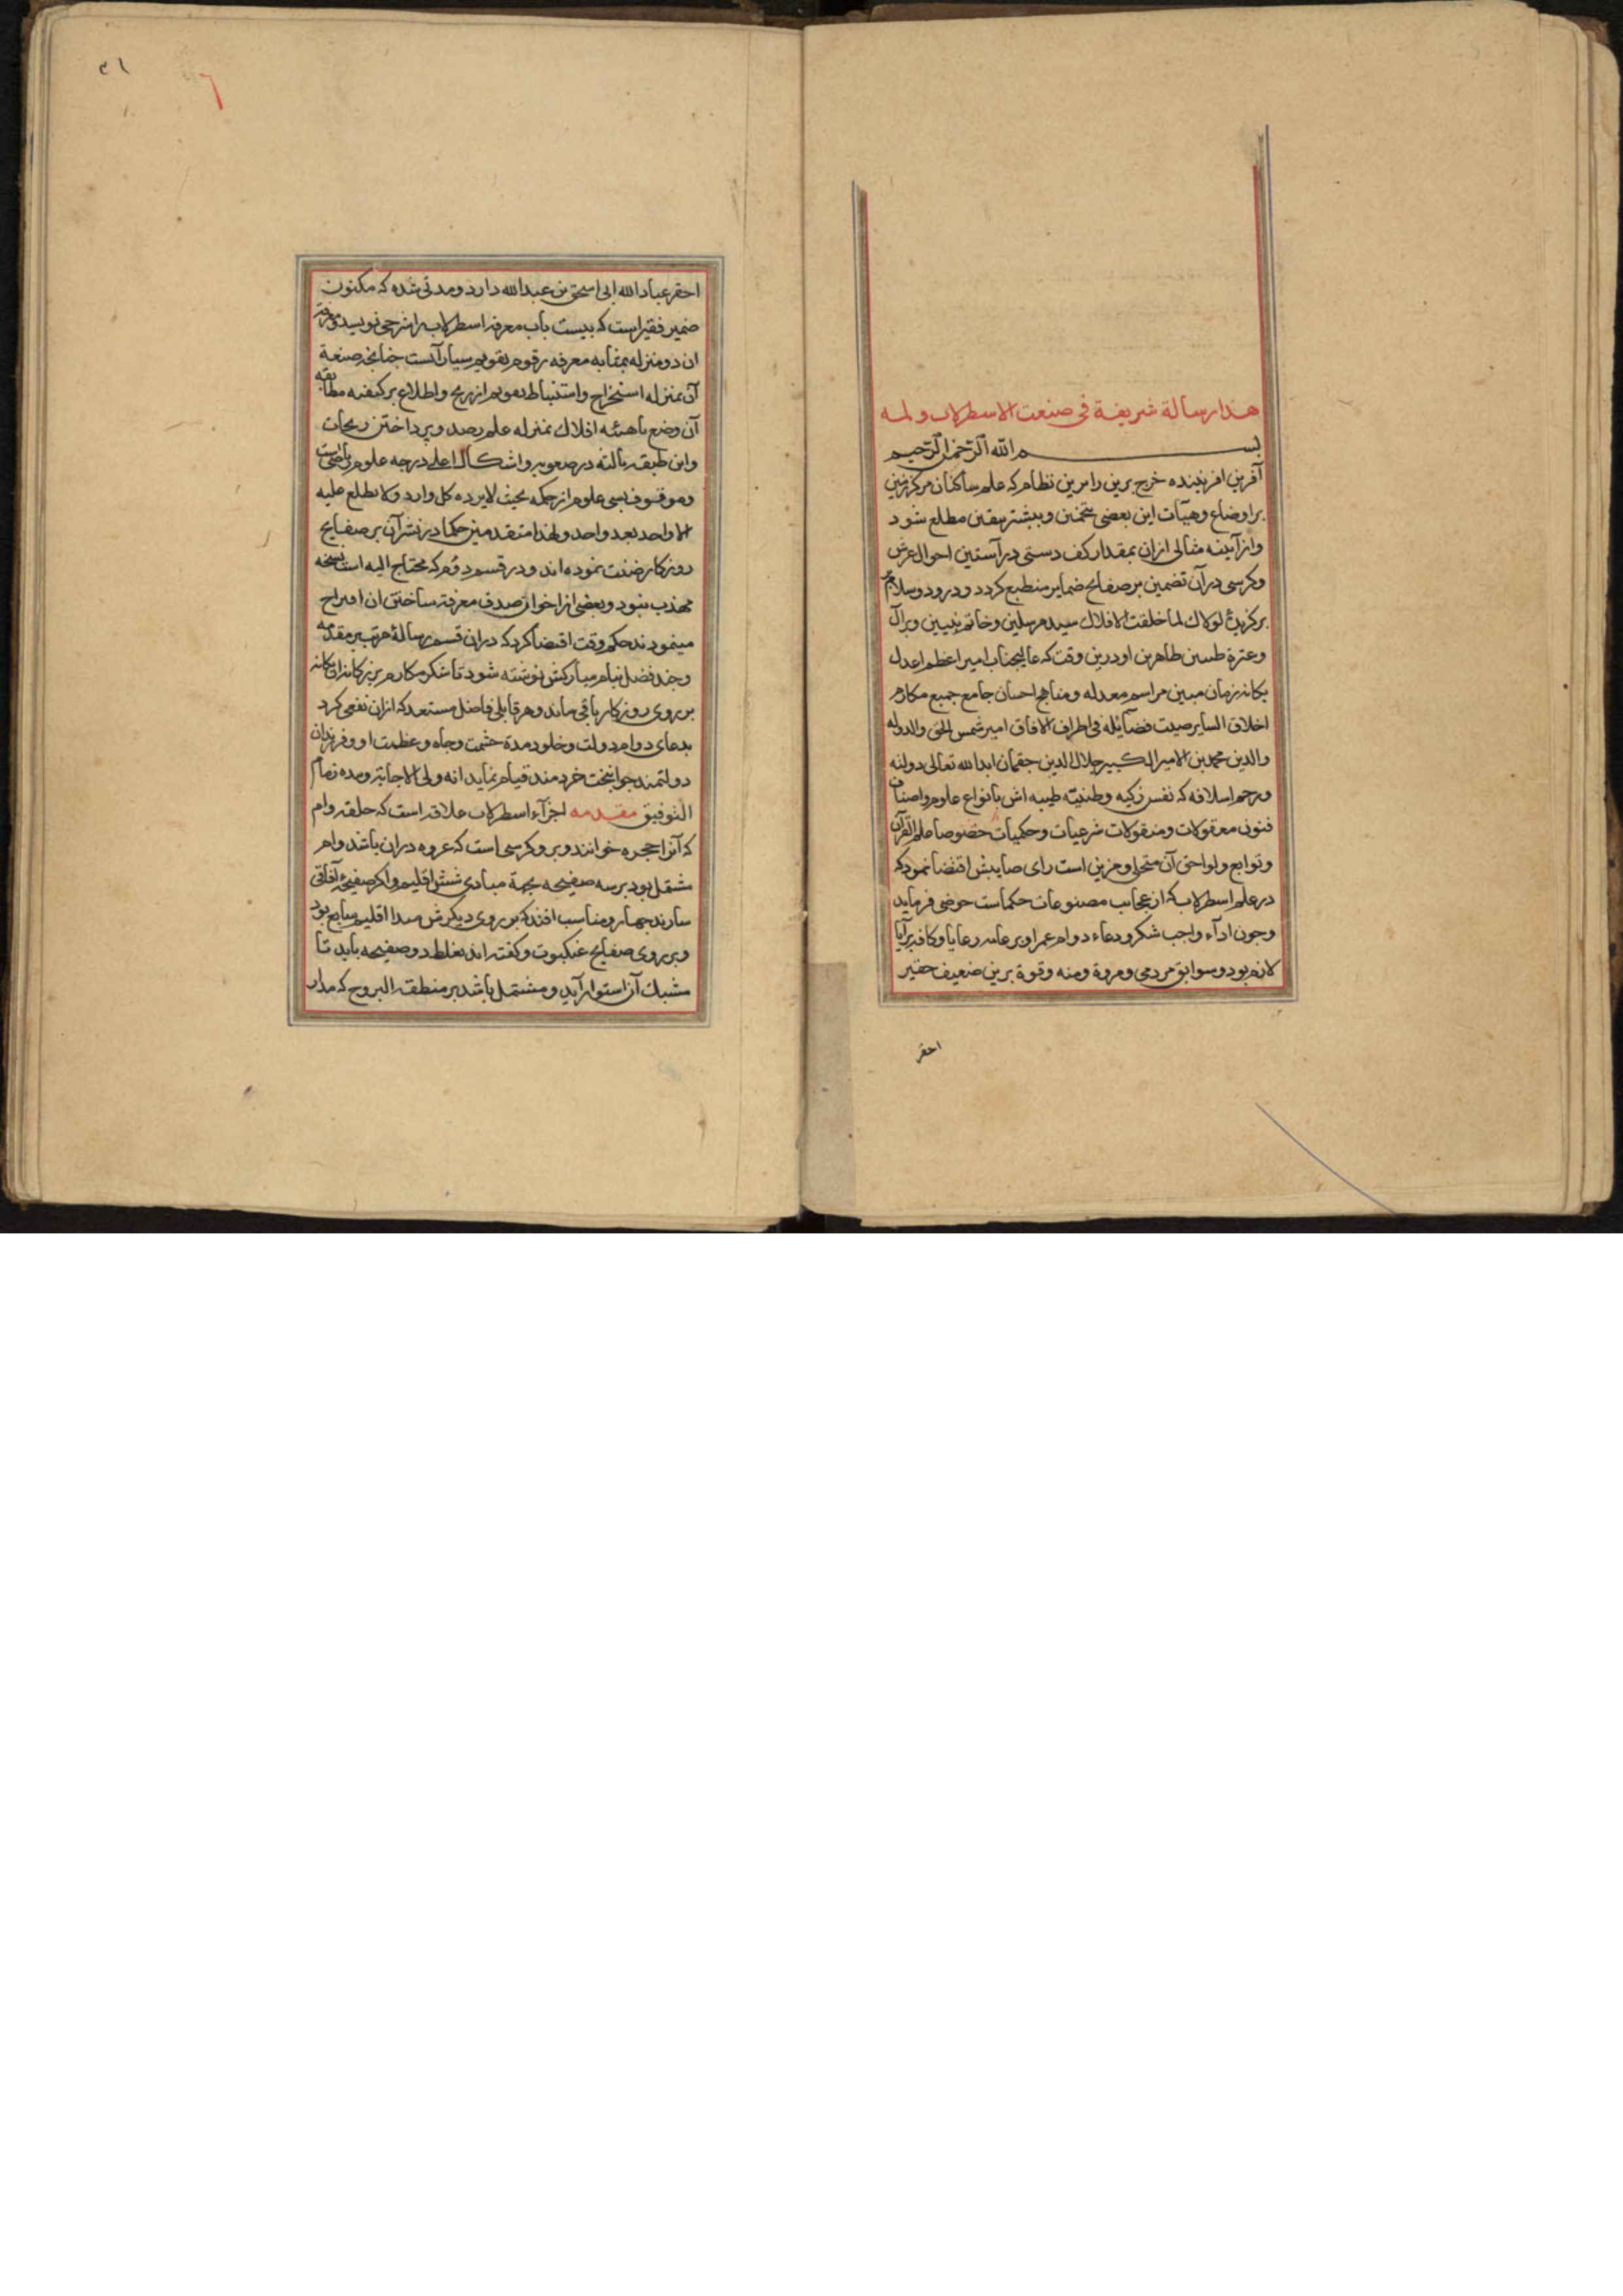 هذا رسالة شريفة فى صنعت الاسطرلاب و لمه
بسم الله الرحمن الرحيم
آفرين افريننده خرج برين را برين نظام كه علم ساكنان مركز زمين
بر اوضاع وهيآت اين بعضى بتخمين وبيشتر بيقين مطلع شود
واز آيينه مثالى ازان بمقدار كف دستى در آستين احوال عرش
وكرسى در آن تضمين بر صفايح ضماير منطبع كردد ودرود وسلام بر
بركزيدۀ لولاك لما خلقت الافلاك سيد مرسلين وخاتم نبيين وبر آل
وعترة طيبين طاهرين او درين وقت كه عاليجناب امير اعظم اعدل
يكانه زمان مبين مراسم معدله ومناهج احسان جامع جميع مكارم
اخلاق الساير صيت فضائله فى اطراف الافاق امير شمس الحق والدوله
والدين محمد بن الامير الكبير جلال الدين جقمان ابد الله تعالى دولته
ورحم اسلافه كه نفس زكيه وطينته طيبه اش بانواع علوم واصناف
فنون معقولات ومنقولات شرعيات وحكميات خصوصا علم القرآن
وتوابع ولواحق آن متحلى ومزين است راى صايبش اقتضا نمود كه
در علم اسطرلاب كه از عجايب مصنوعات حكماست خوضى فرمايد
وجون ادآء واجب شكر ودعاء دوام عمر او بر عامه رعايا وكافه برآيا
لازم بود وسوابق مردمى ومروة ومنه وقوة برين ضعيف حقير
احقر
٢١
احقر عباد الله ابى اسحق بن عبدالله دارد ومدتى شده كه مكنون
ضمير فقير است كه بيست باب معرفه اسطرلاب را شرحى نويسد
ان دو منزله بمثابه معرفه رقوم تقويم سيارآتست جنانجه صنعة
آن بمنزله استخراج واستنباط تقويم از زيج واطلاع بر كيفيه مطابقه
آن وضع با هيئه افلاك بمنزله علم رصد وپرداختن زيجات
واين طبقه ثالثه در صعوبه واشكال اعلى درجه علوم رياضى است
وموقوف بسى علوم از حكمه بحيث لا يرده كل وارد ولا يطلع عليه
الا واحد بعد واحد ولهذا متقدمين حكما در نشر آن بر صفايح
روزكار ضنت نموده اند ودر قسم دوم كه محتاج اليه است نسخه
مهذب نبود وبعضى از اخوان صدق معرفة ساختن ان اقتراح
مينمودند حكم وقت اقتضا كرد كه دران قسم رسالۀ مرتب بر مقدمه
وجند فصل بنام مباركش نوشته شود تا شكر مكارم بزركانه
بر روى روزكار باقى ماند وهر قابلى فاضل مستعد كه ازان نفعى كرد
بدعاى دوام دولت وخلود مدة حشمت وجاه وعظمت او وفرزندان
دولتمند جوانبخت خردمند قيام نمايد انه ولى الاجابة وبيده زمام
التوفيق مقدمه اجزآء اسطرلاب علاقه است كه حلقه وام
كه آنرا حجره خوانند وبرو كرسى است كه عروه دران باشد وام
مشتمل بود بر سه صفيحه بجهة مبادى شش اقليم واكر صفيحۀ آفاقى
سازند جهار ومناسب افتد كه بر روى ديكرش مبدا اقليم سابع بود
وبر روى صفايح عنكبوت وكفته اند بغلط دو صفيحه بايد تا
مشبك آن استوار آيد ومشتمل باشد بر منطقه البروج كه مدار